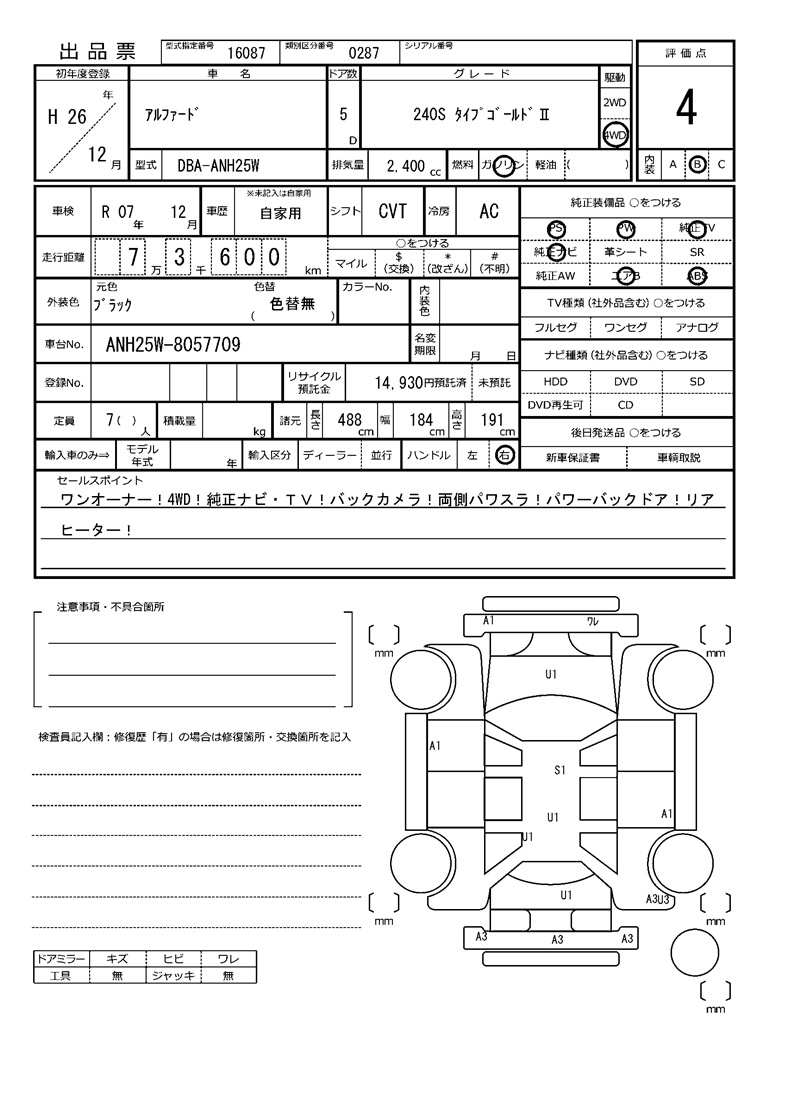 出品票 型式指定番号 16087 類別区分番号 0287 シリアル番号
評価点
初年度登録 車名 ドア数 グレード 駆動
H 26 年 12 月 アルファード 5 D 240S タイプゴールドⅡ 2WD 4WD 4
型式 DBA-ANH25W 排気量 2,400 cc 燃料 ガソリン 軽油 ( ) 内装 A B C
車検 R 07 年 12 月 車歴 ※未記入は自家用 自家用 シフト CVT 冷房 AC
純正装備品 ○をつける
PS PW 純正TV
純正ナビ 革シート SR
純正AW エアB ABS
走行距離 7 万 3 千 6 0 0 km
○をつける
マイル $ (交換) * (改ざん) # (不明)
外装色 元色 ブラック 色替 ( 色替無 ) カラーNo. 内装色
TV種類 (社外品含む) ○をつける
フルセグ ワンセグ アナログ
車台No. ANH25W-8057709 名変期限 月 日
ナビ種類 (社外品含む) ○をつける
HDD DVD SD
DVD再生可 CD
登録No. リサイクル預託金 14,930円預託済 未預託
定員 7( ) 人 積載量 kg 諸元 長さ 488 cm 幅 184 cm 高さ 191 cm
後日発送品 ○をつける
新車保証書 車輌取説
輸入車のみ⇒ モデル年式 年 輸入区分 ディーラー 並行 ハンドル 左 右
セールスポイント
ワンオーナー!4WD!純正ナビ・TV!バックカメラ!両側パワスラ!パワーバックドア!リア
ヒーター!
注意事項・不具合箇所
検査員記入欄:修復歴「有」の場合は修復箇所・交換箇所を記入
A1 ワレ
mm mm
U1
A1
S1
U1 A1
U1
U1 A3U3
mm mm
A3 A3 A3
mm
ドアミラー キズ ヒビ ワレ
工具 無 ジャッキ 無